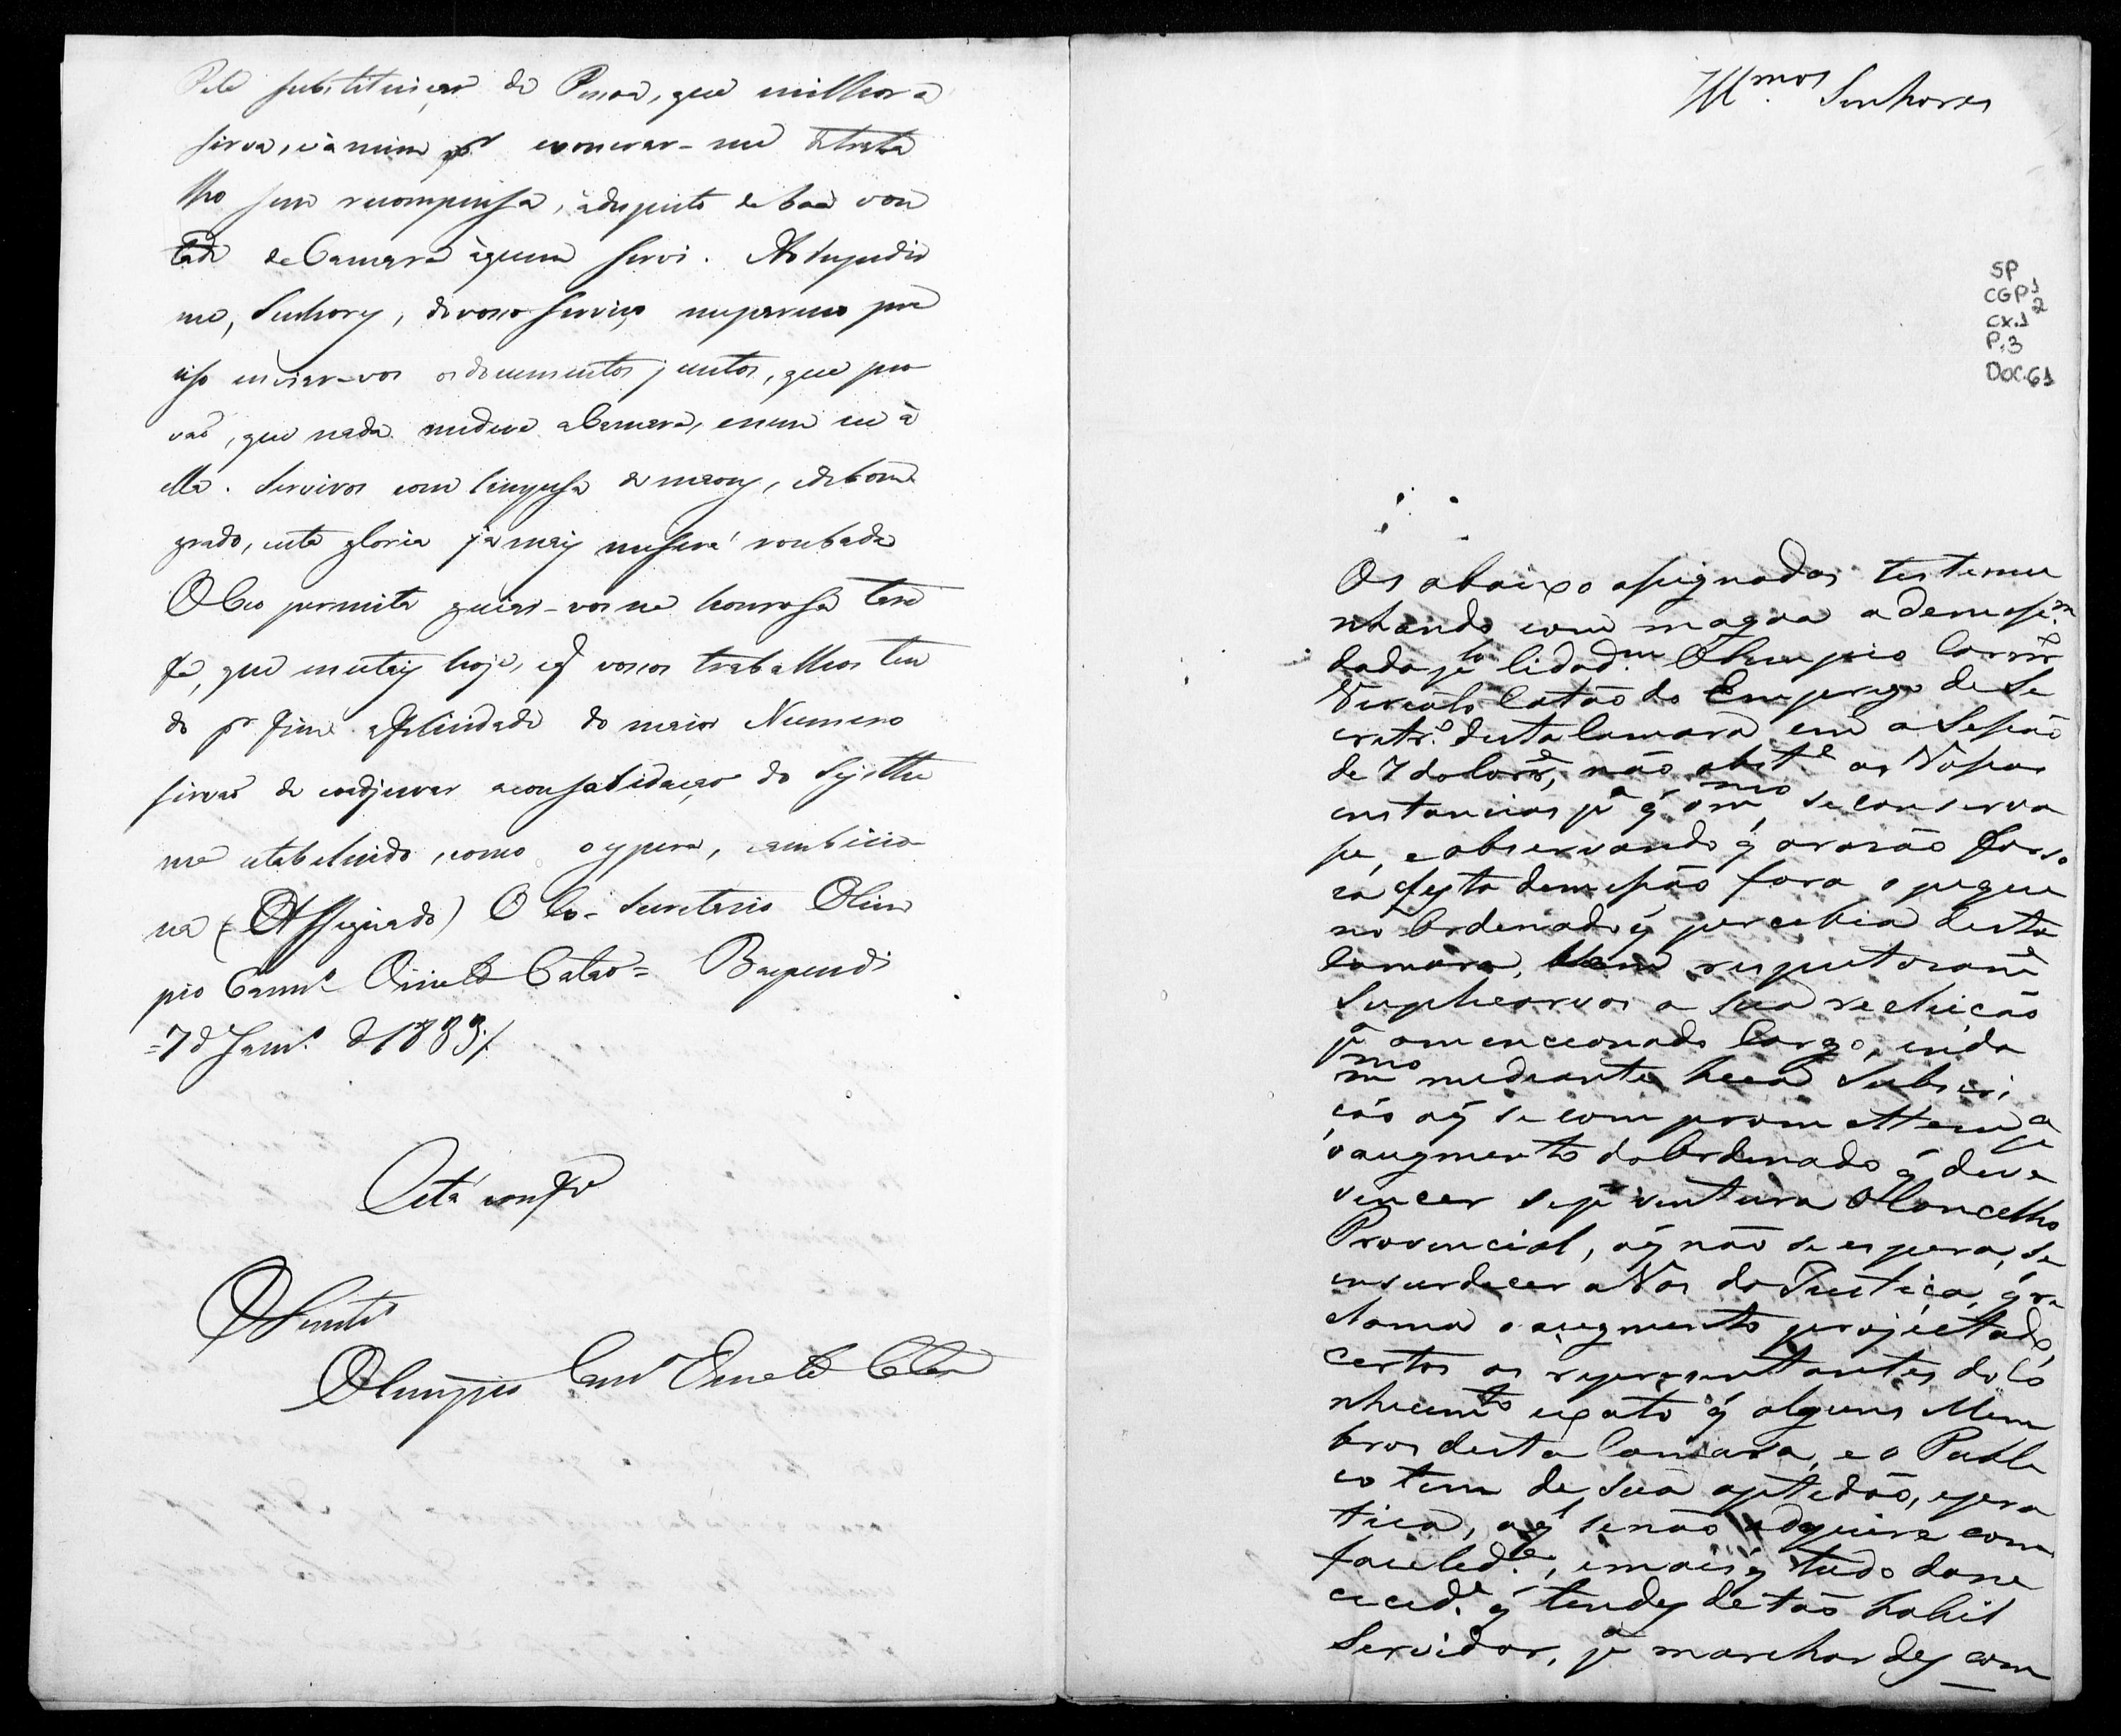 Pela substituiçaõ da Pessoa, que milhor a
sirva, e à mim pr exonerar-me detraba
lho sem recompensa, àdespeito da boa von
tade da Camara àquem servi. Ao despedir
me, Senhores, do vosso serviço me parece pre
ciso enviar-vos os documentos juntos, que pro
vaõ, que nada medeve a Camara, e nem eu à
ella. Servivos com limpesa de maons, e de bom
grado, esta gloria jamais meserá roubada
O Ceo permita guiar-vos na honrosa tare
fa, que encetais hoje, e q vossos trabalhos ten
do pr fim a felicidade do maior Numero
sirvaõ de coadjuvar a consolidaçaõ do Systhe
ma estabelecido, como o espera, e ambicio
na (Assignado) O Ex-Secretario Olim
pio Carnro Viriato Cataõ = Baependi
= 7 d Janro d 1833./.
Está conforme
O Secretº
Olimpio Carnr Viriato Catão
Illmos Senhores
SP
CGP1
2
CX.1
P.3
DOC.61
Os abaixo assignados testemu
nhando com magoa a demissam
dada pelo Cidadam Olimpio Carnrº
Viriato Catão do Emprego de Se
cretrº desta Camara em a Sessão
de 7 do Corre, não obste as Vossas
instancias pª q o mmo se conserva
se, e observando q a rasão
desta demissão fora o peque
no Ordenado q percebia desta
Camara, Vem respeitosame
Suplicarvos a sua reeleição
pª o mencionado Cargo, inda
mmo mediante huma Subscri
ção a q se comprometem pª
o augmento do Ordenado q deve
vencer se p ventura o Concelho
Provincial, o q não se espera, se
ensurdecer a Vos da Justiça, q re
clama o augmento projectado,
certos os representantes do Co
nhecimto exato q alguns Mem
bros desta Camara, e o Publi
co tem de sua aptidão, e pra
tica, a q se não adquire com
facilide, e mais q tudo da ne
cecide q tendes de tão habil
Servidor, pª marchardes com